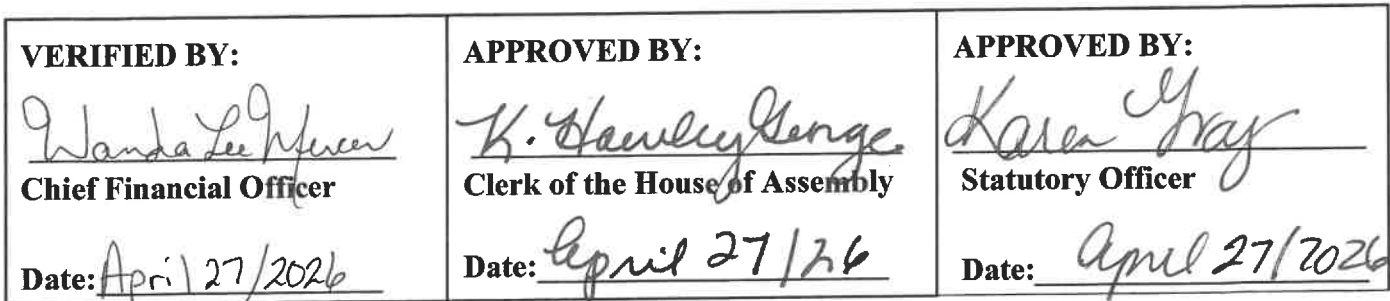 VERIFIED BY:
Wanda Lee Mercer
Chief Financial Officer
Date: April 27/2026
APPROVED BY:
K. Hawley George
Clerk of the House of Assembly
Date: April 27/26
APPROVED BY:
Karen Gray
Statutory Officer
Date: April 27/2026